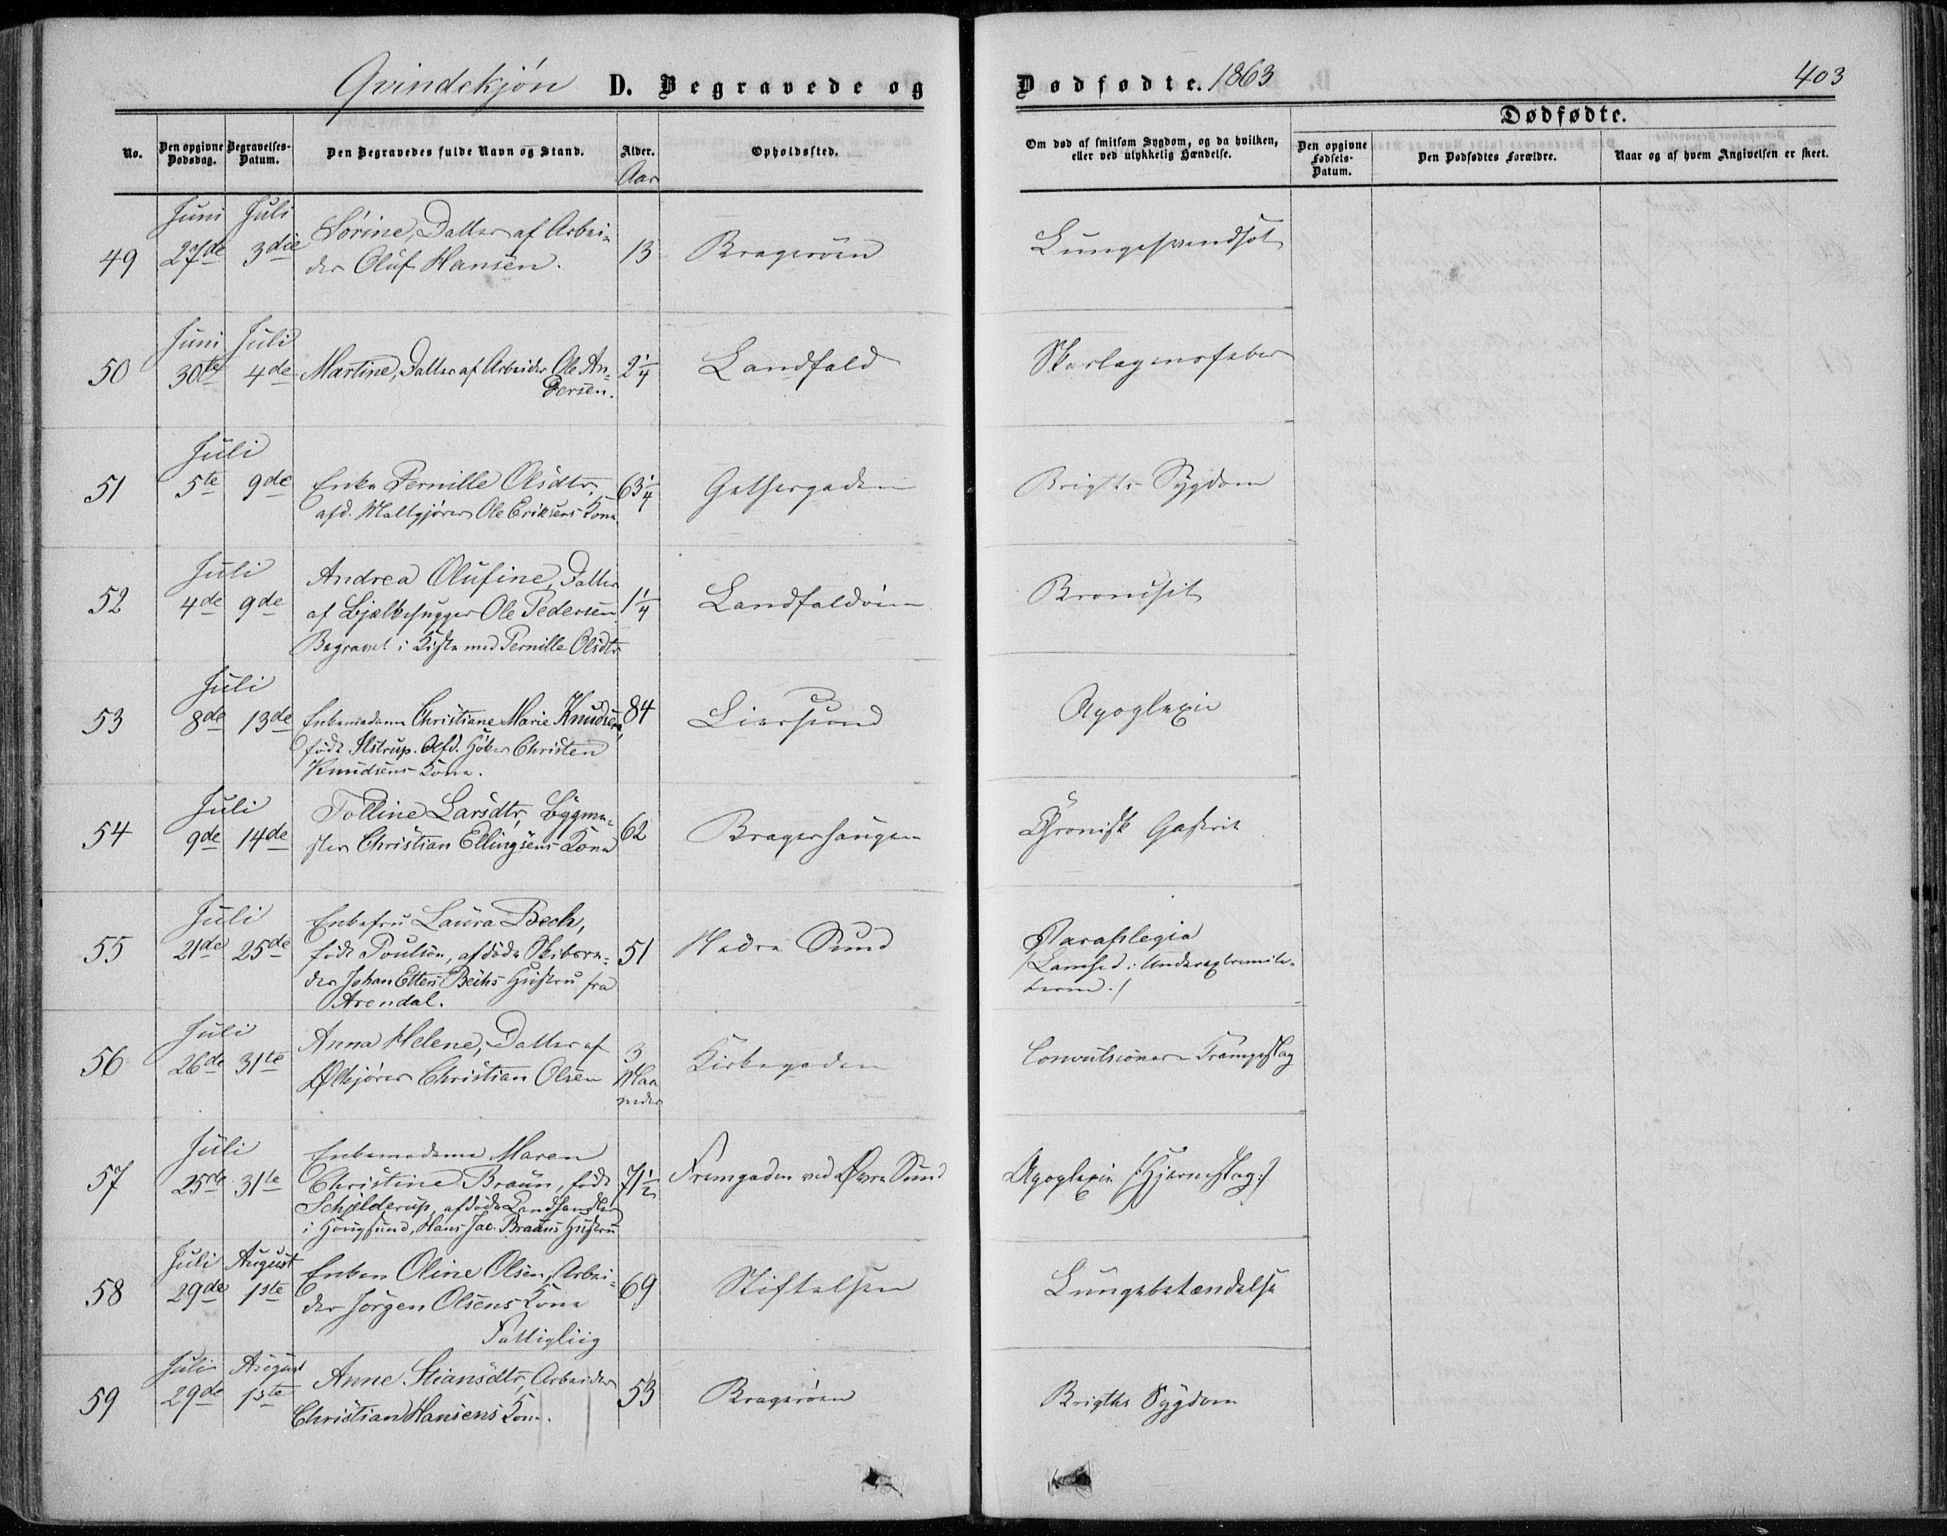 Qvindekjøn D. Begravede og Dødfødte. 1863 403
Dødfødte.
No. Den opgivne Dødsdag. Begravelses-Datum. Den Begravedes fulde Navn og Stand. Alder. Opholdssted. Om død af smitsom Sygdom, og da hvilken, eller ved ulykkelig Hændelse. Den opgivne Fødsels-Datum. Den Dødfødtes Forældre. Naar og af hvem Angivelsen er skeet.
Aar
Juni Juli Sørine, Datter af Arbei-
49 27de 3die der Oluf Hansen. 13 Bragerøen Lungesvindsot
Juni Juli
50 30te 4de Martine, Datter af Arbeider Ole An- 2 1/4 Landfald Skarlagensfeber
dersen.
Juli
51 5te 9de Enke Pernille Olsdtr, 63 1/4 Gethergaden Brigths Sygdom
afd. Maltgjører Ole Eriksens Kone
Juli Andrea Olufine, Datter
52 4de 9de af Bjælkehugger Ole Pedersen 1 1/4 Landfaldøen Bronchit
Begravet i Kiste med Pernille Olsdtr
Juli
53 8de 13de Enkemadame Christiane Marie Knudsen, 84 Liersund Apoplexie
født Ilstrup. Afd. Høker Christen
Knudsens Kone.
Juli Tolline Larsdtr, Bygme-
54 9de 14de ster Christian Ellingsens Kone 62 Bragerhaugen Chronisk Gastrit
Juli Enkefru Laura Bech,
55 21de 25de født Poulsen, afdøde Skibsre- 51 Nedre Sund Paraplegia
der Johan Etten Bechs Hustru fra (Lamhed i Underextremite-
Arendal. terne.)
Juli Anna Helene, Datter af
56 26de 31te Ølkjører Christian Olsen 3 Maaneder Kirkegaden Convulsioner – Krampeslag
Juli Enkemadame Maren
57 25de 31te Christine Braun, født 71 1/2 Fremgaden ved Øvre Sund Apoplexie (:Hjerneslag:)
Schjelderup, afdøde Landhandler
i Hougsund, Hans Jac. Brauns Hustru
Juli August Enken Oline Olsen, Arbei-
58 29de 1ste der Jørgen Olsens Kone 69 Stiftelsen Lungebetændelse
Fattigliig
Juli August Anne Stiansdtr, Arbeider
59 29de 1ste Christian Hansens Kone. 53 Bragerøen Brigths Sygdom